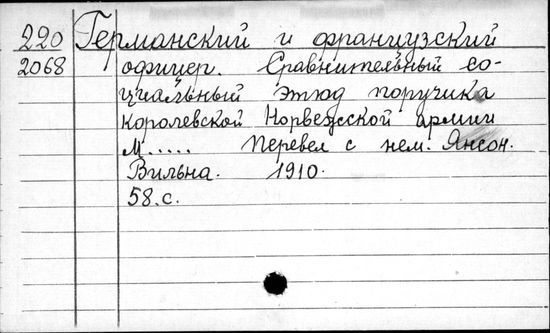 220 Германский и французский
2068 офицер. Сравнительный со-
циальный этюд поручика
Королевской Норвежской армии
М..... Перевел с нем. Янсон.
Вильна. 1910.
58.с.